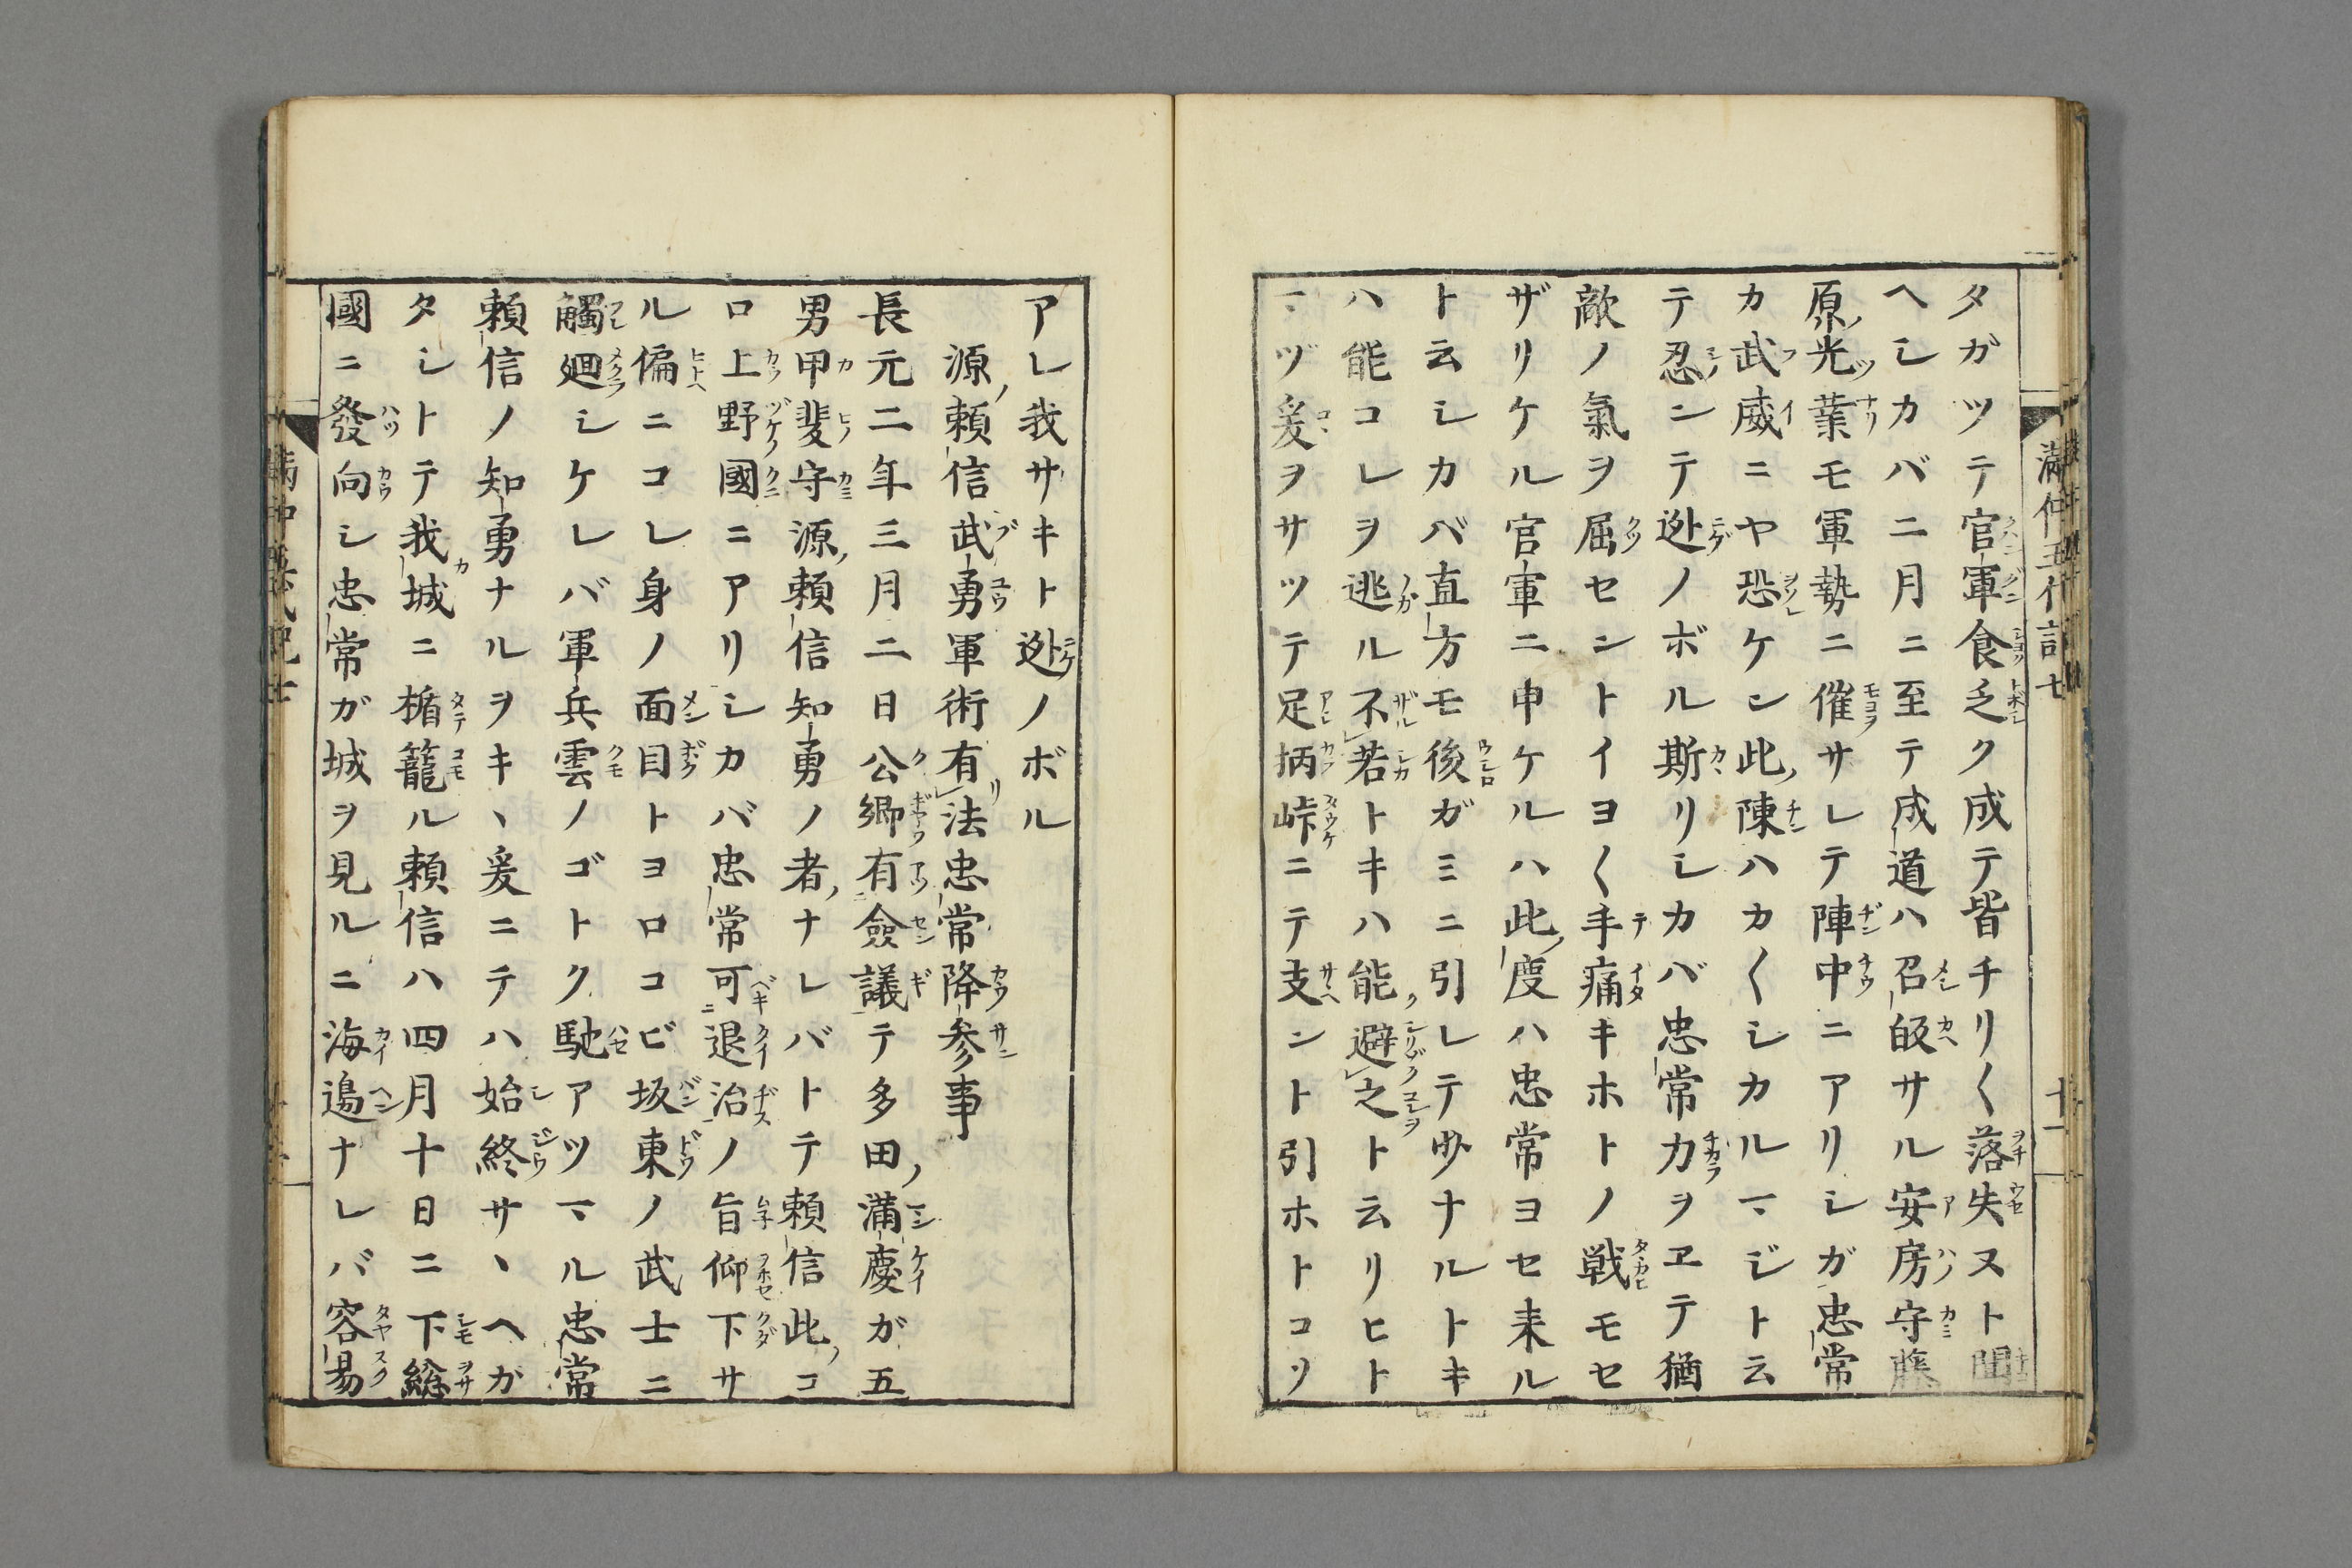 タガツテ官軍食乏ク成テ皆チリ〱落失ヌト聞
ヘシカバ二月ニ至テ成道ハ召皈サル安房守藤
原光業モ軍勢ニ催サレテ陣中ニアリシガ忠常
カ武威ニヤ恐ケン此陳ハカ〱シカルマジト云
テ忍ンテ迯ノボル斯リシカバ忠常力ヲヱテ猶
敵ノ氣ヲ屈セントイヨ〱手痛キホトノ戦モセ
ザリケル官軍ニ申ケルハ此度ハ忠常ヨセ来ル
ト云シカバ直方モ後ガミニ引レテ少ナルトキ
ハ能コレヲ逃ル不若トキハ能避之ト云リヒト
マヅ爰ヲサツテ足柄峠ニテ支ント引ホトコソ
満仲五代記七
十一
アレ我サキト迯ノボル
源頼信武勇軍術有法忠常降参事
長元二年三月二日公卿有僉議テ多田満慶が五
男甲斐守源頼信知勇ノ者ナレバトテ頼信此コ
ロ上野國ニアリシカバ忠常可退治ノ旨仰下サ
ル偏ニコレ身ノ面目トヨロコビ坂東ノ武士ニ
觸廻シケレバ軍兵雲ノゴトク馳アツマル忠常
頼信ノ知勇ナルヲキヽ爰ニテハ始終サヽヘガ
タシトテ我城ニ楯籠ル頼信ハ四月十日ニ下総
國ニ發向シ忠常ガ城ヲ見ルニ海邉ナレバ容易